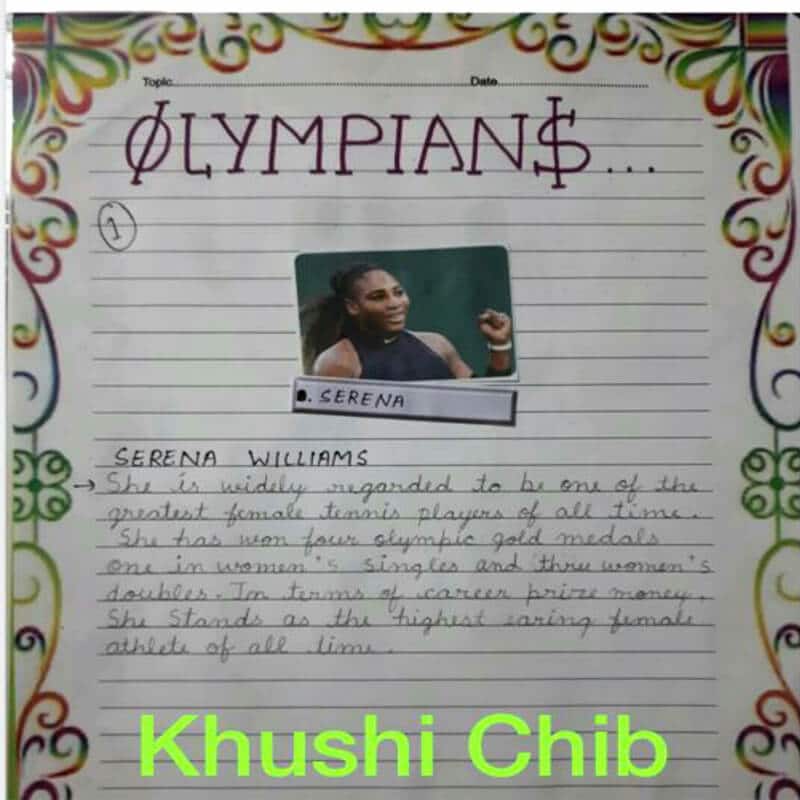 Topic Date
OLYMPIAN$...
1
. SERENA
SERENA WILLIAMS
→ She is widely regarded to be one of the
greatest female tennis players of all time.
She has won four olympic gold medals
one in women's singles and three women's
doubles. In terms of career prize money,
She stands as the highest earing female
athlete of all time.
Khushi Chib